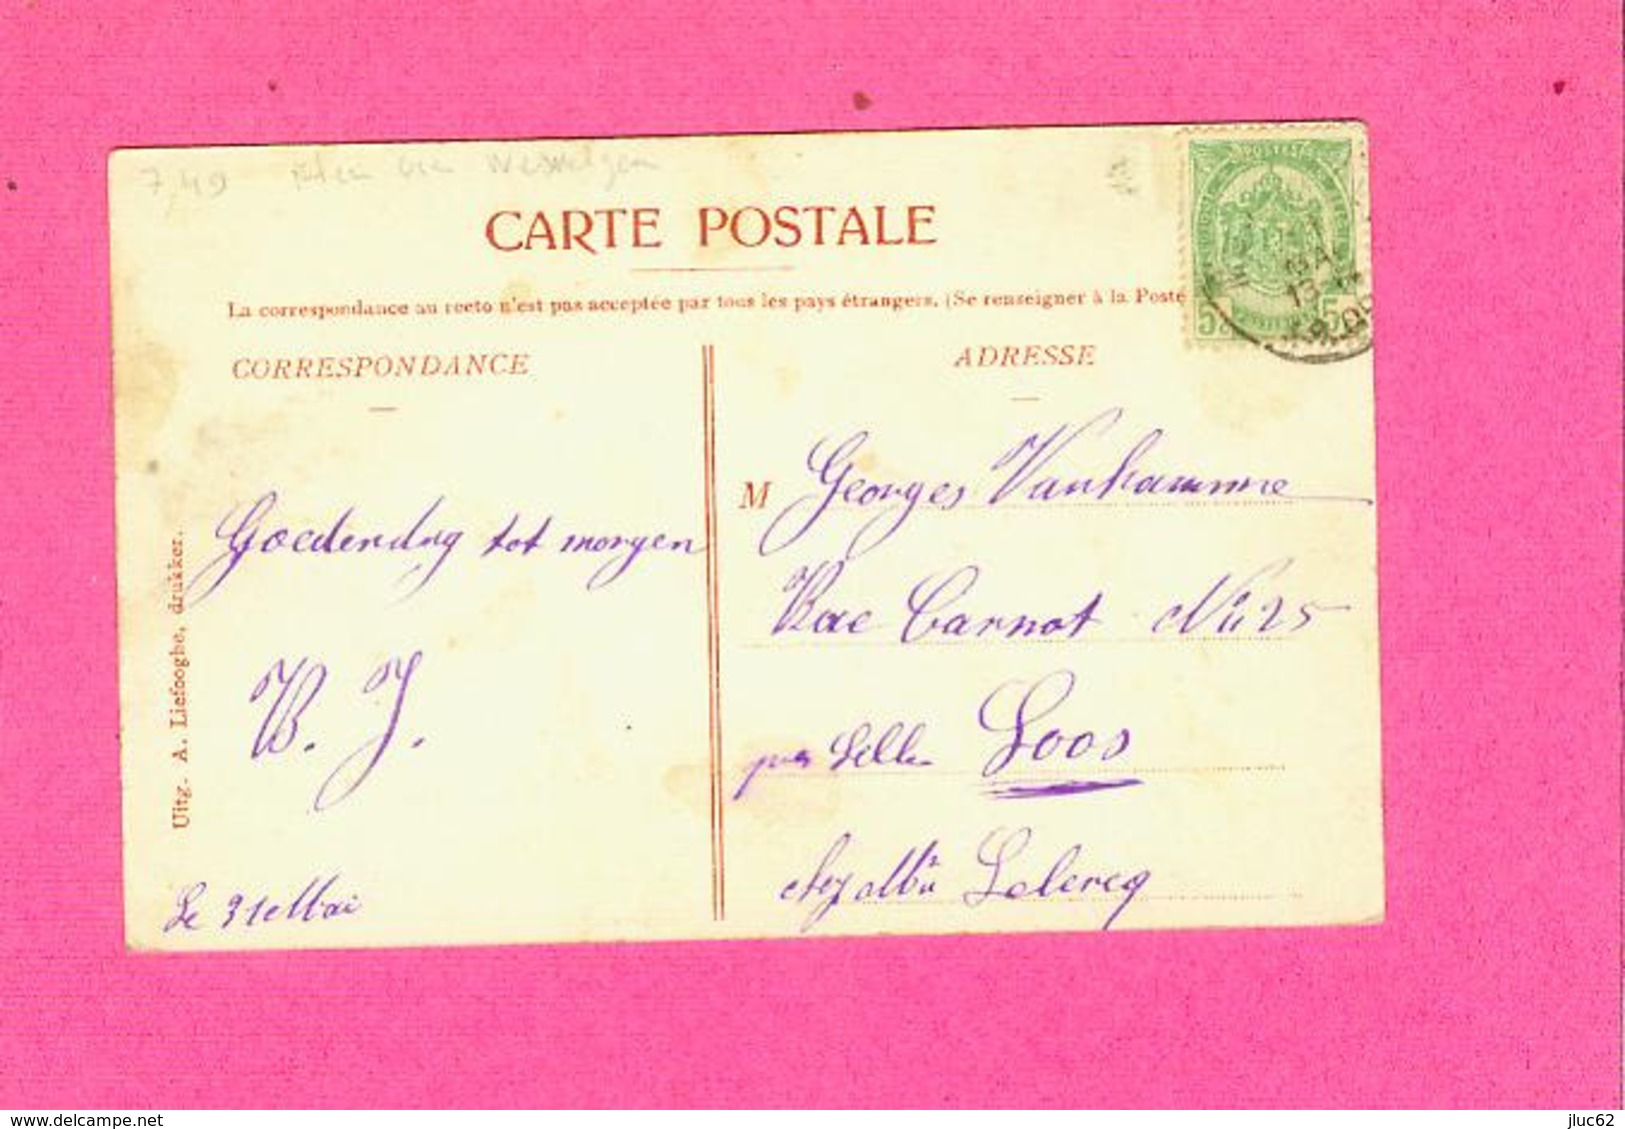 7,49
CARTE POSTALE
La correspondance au recto n'est pas acceptée par tous les pays étrangers. (Se renseigner à la Poste
CORRESPONDANCE
Goedendag tot morgen
B. J.
Le 31 Mai
Uitg. A. Liefooghe, drukker.
ADRESSE
M Georges Vanhamme
Rue Carnot No 25
par Lille Loos
chez Mme Leclercq
POSTES
5
5
jluc62